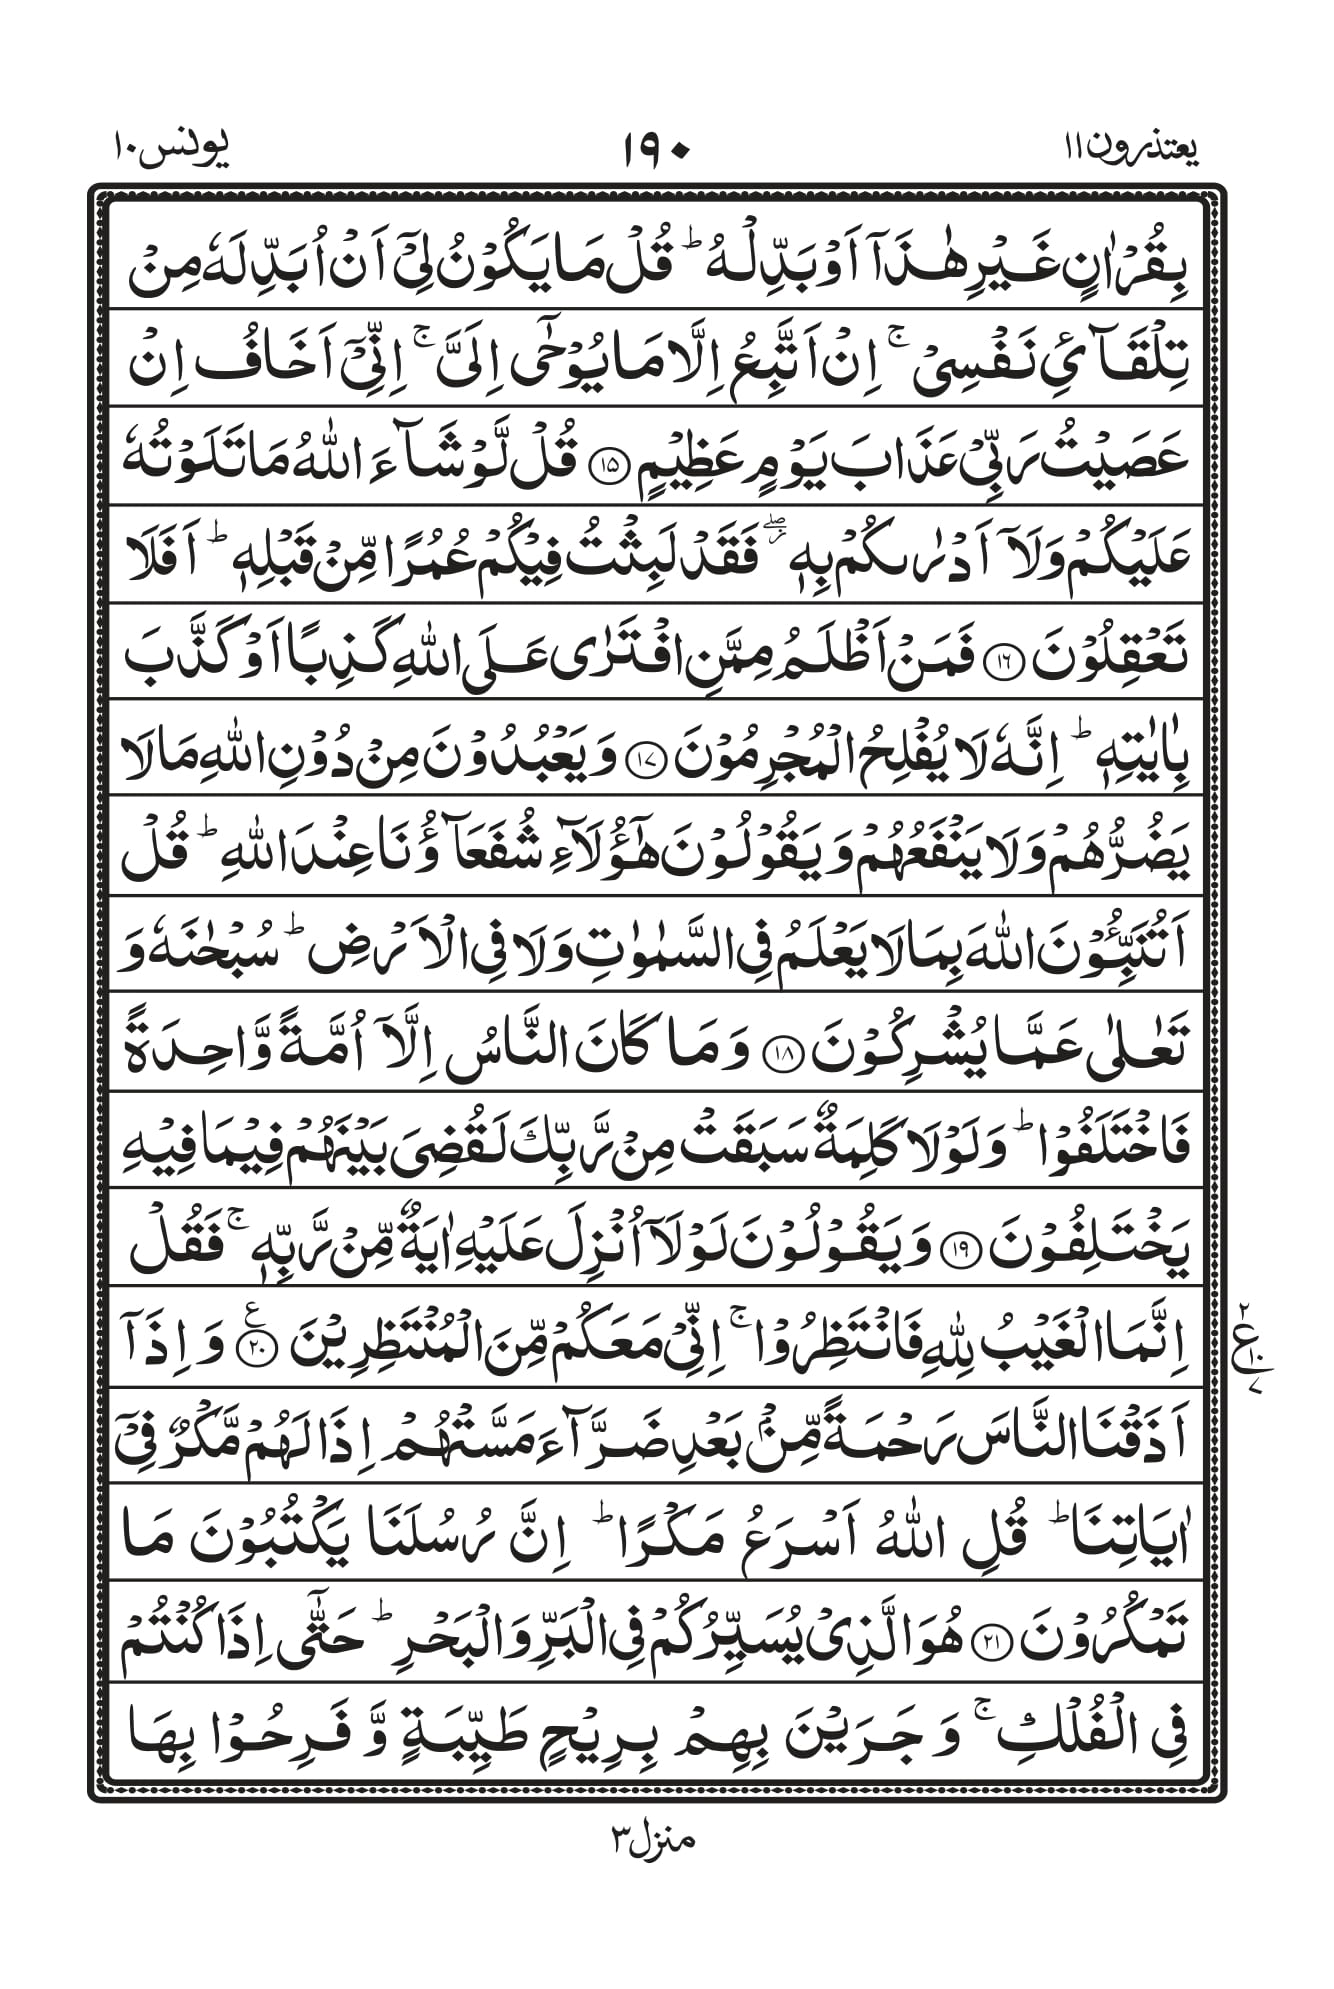 یعتذرون۱۱
۱۹۰
یونس۱۰
بِقُرْاٰنٍ غَیْرِ هٰذَاۤ اَوْ بَدِّلْهُ ؕ قُلْ مَا یَكُوْنُ لِیْۤ اَنْ اُبَدِّلَهٗ مِنْ
تِلْقَآئِ نَفْسِیْ ۚ اِنْ اَتَّبِعُ اِلَّا مَا یُوْحٰۤی اِلَیَّ ۚ اِنِّیْۤ اَخَافُ اِنْ
عَصَیْتُ رَبِّیْ عَذَابَ یَوْمٍ عَظِیْمٍ ﴿۱۵﴾ قُلْ لَّوْ شَآءَ اللّٰهُ مَا تَلَوْتُهٗ
عَلَیْكُمْ وَلَاۤ اَدْرٰىكُمْ بِهٖ ۖ٘ فَقَدْ لَبِثْتُ فِیْكُمْ عُمُرًا مِّنْ قَبْلِهٖ ؕ اَفَلَا
تَعْقِلُوْنَ ﴿۱۶﴾ فَمَنْ اَظْلَمُ مِمَّنِ افْتَرٰی عَلَی اللّٰهِ كَذِبًا اَوْ كَذَّبَ
بِاٰیٰتِهٖ ؕ اِنَّهٗ لَا یُفْلِحُ الْمُجْرِمُوْنَ ﴿۱۷﴾ وَ یَعْبُدُوْنَ مِنْ دُوْنِ اللّٰهِ مَا لَا
یَضُرُّهُمْ وَلَا یَنْفَعُهُمْ وَ یَقُوْلُوْنَ هٰۤؤُلَآءِ شُفَعَآؤُنَا عِنْدَ اللّٰهِ ؕ قُلْ
اَتُنَبِّـُٔوْنَ اللّٰهَ بِمَا لَا یَعْلَمُ فِی السَّمٰوٰتِ وَلَا فِی الْاَرْضِ ؕ سُبْحٰنَهٗ وَ
تَعٰلٰی عَمَّا یُشْرِكُوْنَ ﴿۱۸﴾ وَ مَا كَانَ النَّاسُ اِلَّاۤ اُمَّةً وَّاحِدَةً
فَاخْتَلَفُوْا ؕ وَلَوْلَا كَلِمَةٌ سَبَقَتْ مِنْ رَّبِّكَ لَقُضِیَ بَیْنَهُمْ فِیْمَا فِیْهِ
یَخْتَلِفُوْنَ ﴿۱۹﴾ وَ یَقُوْلُوْنَ لَوْلَاۤ اُنْزِلَ عَلَیْهِ اٰیَةٌ مِّنْ رَّبِّهٖ ۚ فَقُلْ
اِنَّمَا الْغَیْبُ لِلّٰهِ فَانْتَظِرُوْا ۚ اِنِّیْ مَعَكُمْ مِّنَ الْمُنْتَظِرِیْنَ ﴿۲۰﴾ع وَ اِذَاۤ
۲
ع
۱۰
۷
اَذَقْنَا النَّاسَ رَحْمَةً مِّنْۢ بَعْدِ ضَرَّآءَ مَسَّتْهُمْ اِذَا لَهُمْ مَّكْرٌ فِیْۤ
اٰیَاتِنَا ؕ قُلِ اللّٰهُ اَسْرَعُ مَكْرًا ؕ اِنَّ رُسُلَنَا یَكْتُبُوْنَ مَا
تَمْكُرُوْنَ ﴿۲۱﴾ هُوَ الَّذِیْ یُسَیِّرُكُمْ فِی الْبَرِّ وَ الْبَحْرِ ؕ حَتّٰۤی اِذَا كُنْتُمْ
فِی الْفُلْكِ ۚ وَ جَرَیْنَ بِهِمْ بِرِیْحٍ طَیِّبَةٍ وَّ فَرِحُوْا بِهَا
منزل۳